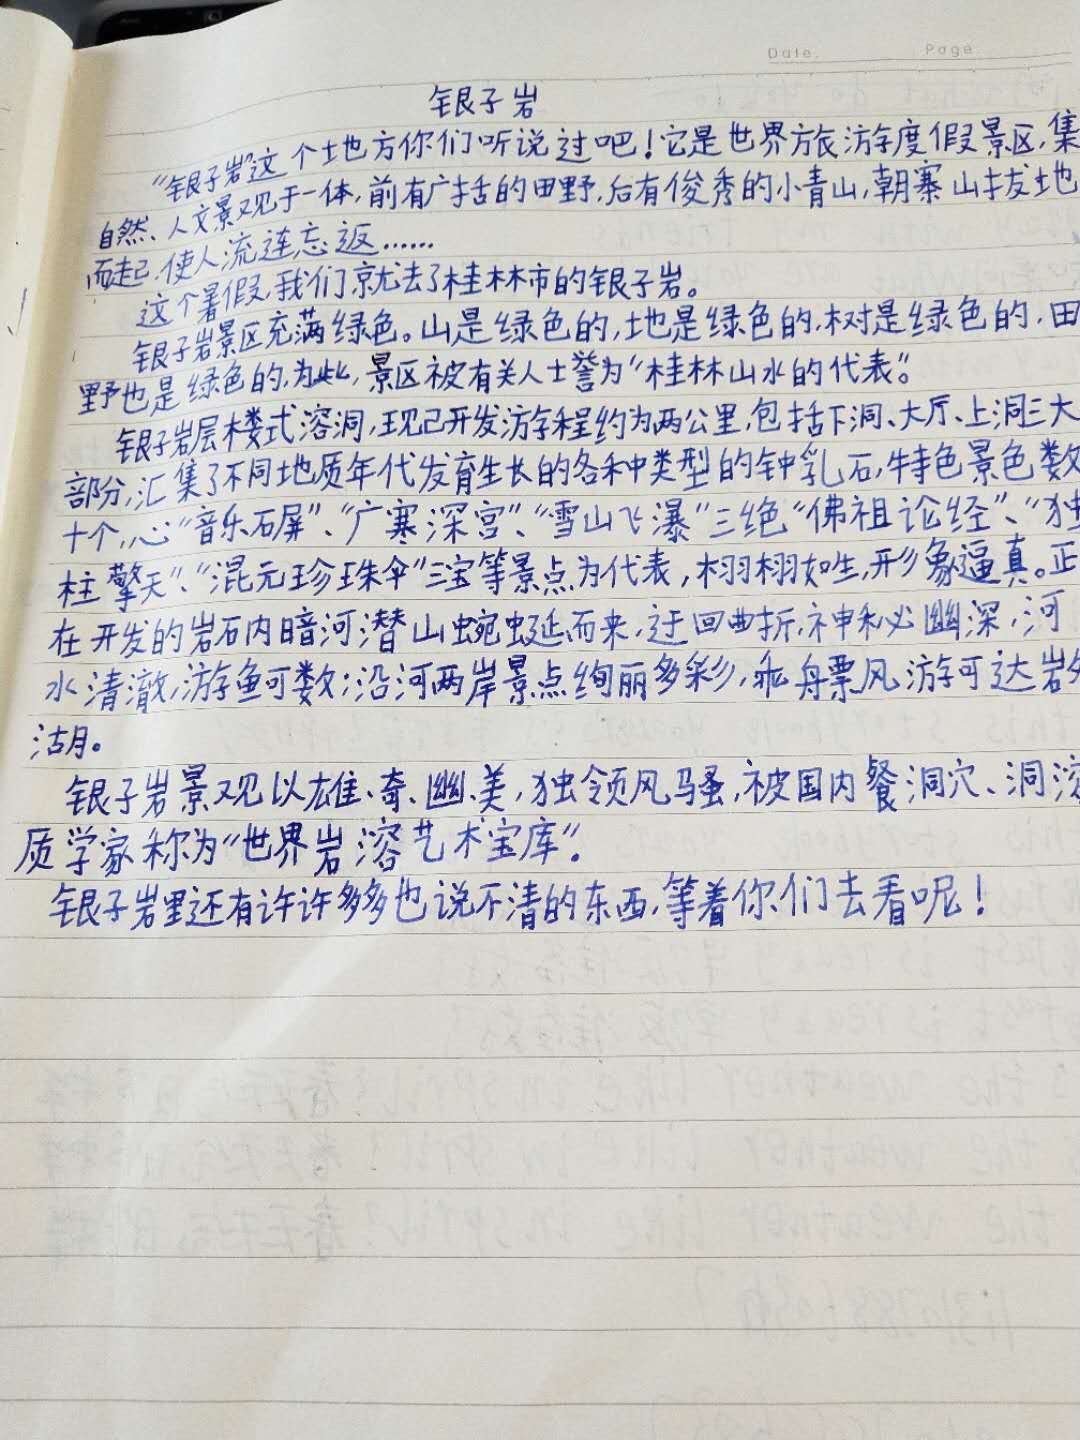 Date.    Page
银子岩
“银子岩”这个地方你们听说过吧！它是世界旅游度假景区，集
自然、人文景观于一体，前有广括的田野，后有俊秀的小青山，朝寨山拔地
而起，使人流连忘返……
这个暑假，我们就去了桂林市的银子岩。
银子岩景区充满绿色。山是绿色的，地是绿色的，树是绿色的，田
野也是绿色的，为此，景区被有关人士誉为“桂林山水的代表”。
银子岩层楼式溶洞，现已开发游程约为两公里，包括下洞、大厅、上洞三大
部分，汇集了不同地质年代发育生长的各种类型的钟乳石，特色景色数
十个，心“音乐石屏”、“广寨深宫”、“雪山飞瀑”三绝“佛祖论经”、“独
柱擎天”、“混元珍珠伞”三宝等景点为代表，栩栩如生，形象逼真。正
在开发的岩石内暗河潜山蜿蜒而来，迂回曲折，神秘幽深，河
水清澈，游鱼可数；沿河两岸景点绚丽多彩，乘舟票风游可达岩外
湖。
银子岩景观以雄、奇、幽、美，独领风骚，被国内餐洞穴、洞
质学家称为“世界岩溶艺术宝库”。
银子岩里还有许许多多也说不清的东西，等着你们去看呢！